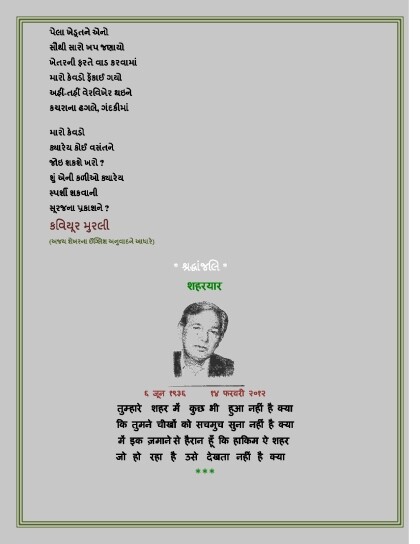 પેલા ખેડૂતને એનો
સૌથી સારો ખપ જણાયો
ખેતરની ફરતે વાડ કરવામાં
મારો કેવડો ફેંકાઈ ગયો
અહીં-તહીં વેરવિખેર થઇને
કચરાના ઢગલે, ગંદકીમાં
મારો કેવડો
ક્યારેય કોઈ વસંતને
જોઇ શકશે ખરો ?
શું એની કળીઓ ક્યારેય
સ્પર્શી શકવાની
સૂરજના પ્રકાશને ?
કવિયૂર મુરલી
(અજય શેખરના ઈંગ્લિશ અનુવાદને આધારે)
* શ્રદ્ધાંજલિ *
શહરયાર
૬ જૂન ૧૯૩૬ ૧૪ ફરવરી ૨૦૧૨
तुम्हारे शहर में कुछ भी हुआ नहीं है क्या
कि तुमने चीखों को सचमुच सुना नहीं है क्या
में इक ज़माने से हैरान हूँ कि हाकिम ऐ शहर
जो हो रहा है उसे देखता नहीं है क्या
***